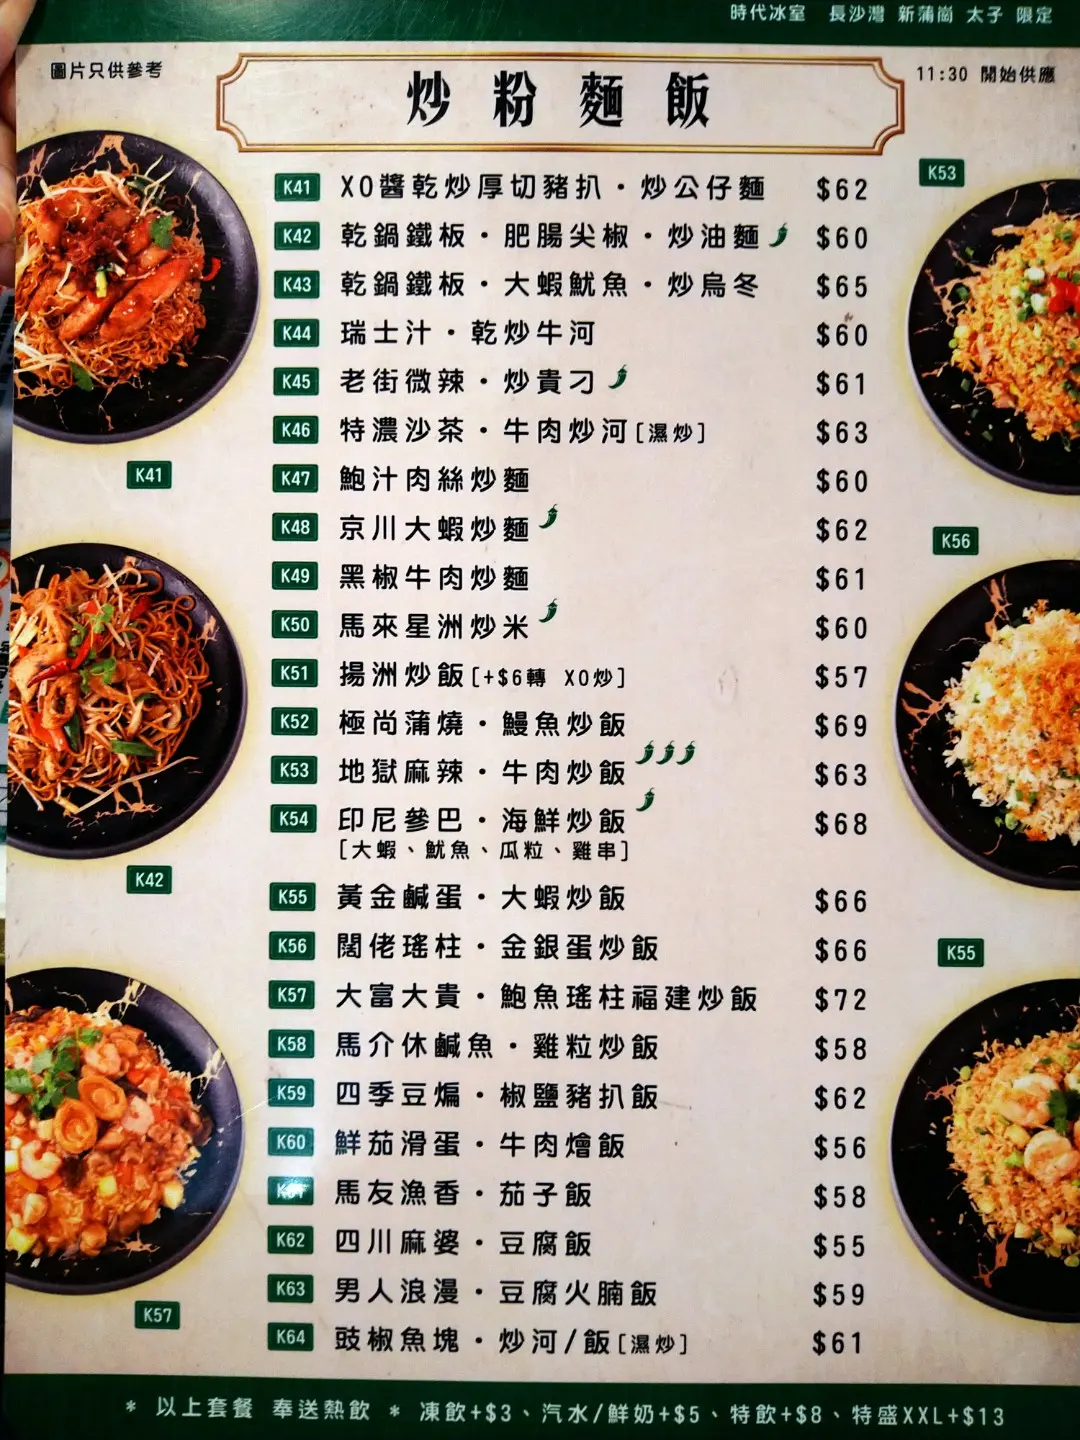 時代冰室 長沙灣 新蒲崗 太子 限定
圖片只供參考
11:30 開始供應
炒粉麵飯
K41 XO醬乾炒厚切豬扒・炒公仔麵 $62
K42 乾鍋鐵板・肥腸尖椒・炒油麵 $60
K43 乾鍋鐵板・大蝦魷魚・炒烏冬 $65
K44 瑞士汁・乾炒牛河 $60
K45 老街微辣・炒貴刁 $61
K46 特濃沙茶・牛肉炒河[濕炒] $63
K47 鮑汁肉絲炒麵 $60
K48 京川大蝦炒麵 $62
K49 黑椒牛肉炒麵 $61
K50 馬來星洲炒米 $60
K51 揚洲炒飯[+$6轉 XO炒] $57
K52 極尚蒲燒・鰻魚炒飯 $69
K53 地獄麻辣・牛肉炒飯 $63
K54 印尼參巴・海鮮炒飯 $68
[大蝦、魷魚、瓜粒、雞串]
K55 黃金鹹蛋・大蝦炒飯 $66
K56 闊佬瑤柱・金銀蛋炒飯 $66
K57 大富大貴・鮑魚瑤柱福建炒飯 $72
K58 馬介休鹹魚・雞粒炒飯 $58
K59 四季豆煸・椒鹽豬扒飯 $62
K60 鮮茄滑蛋・牛肉燴飯 $56
K61 馬友漁香・茄子飯 $58
K62 四川麻婆・豆腐飯 $55
K63 男人浪漫・豆腐火腩飯 $59
K64 豉椒魚塊・炒河/飯[濕炒] $61
K41
K42
K57
K53
K56
K55
* 以上套餐 奉送熱飲 * 凍飲+$3、汽水/鮮奶+$5、特飲+$8、特盛XXL+$13